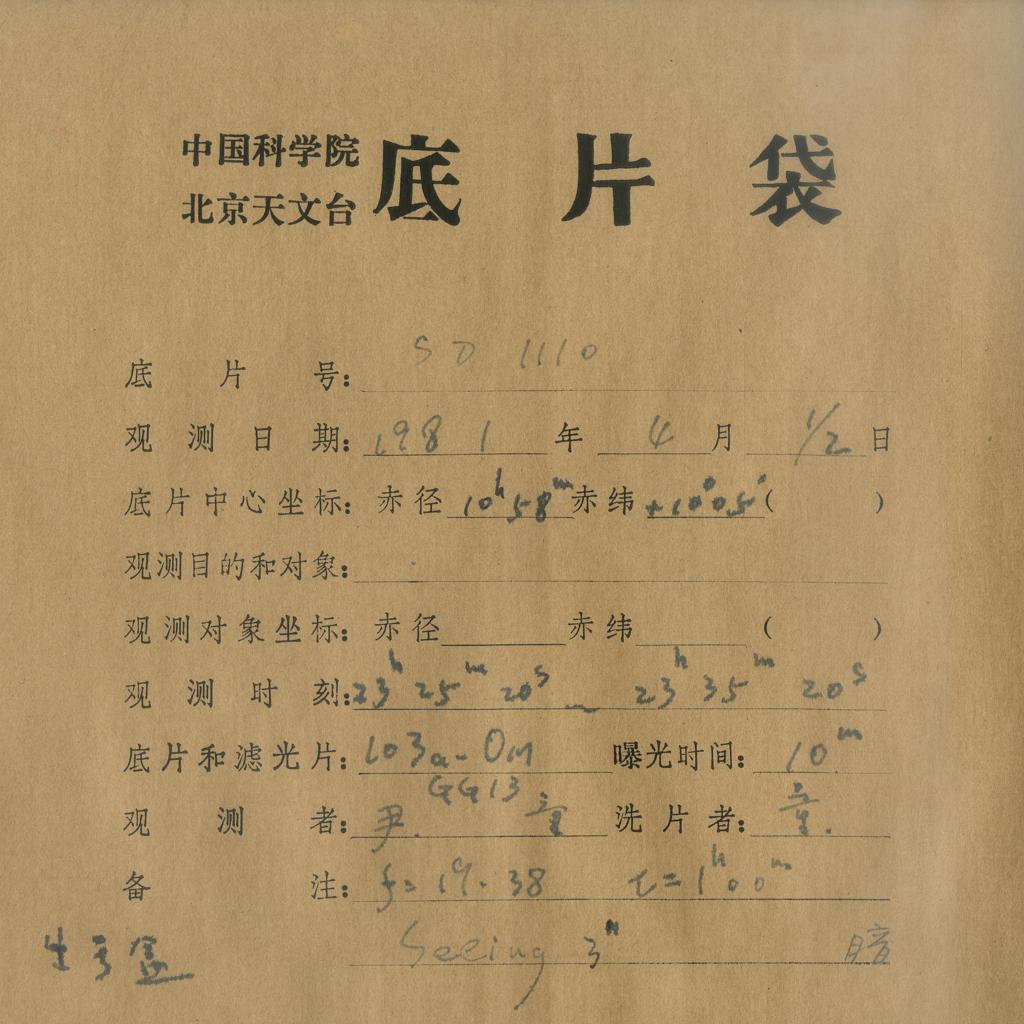 中国科学院
北京天文台
底片袋
底片号：SD 1110
观测日期：1981年 4月 1/2日
底片中心坐标：赤径 10h58m 赤纬 +10°05′（ ）
观测目的和对象：
观测对象坐标：赤径 赤纬 （ ）
观测时刻：23h 25m 20s ～ 23h 35m 20s
底片和滤光片：103a-OM 曝光时间：10m
GG13
观测者：尹. 童 洗片者：童.
备注：f=19.38 t=1h00m
Seeing 3" 暗